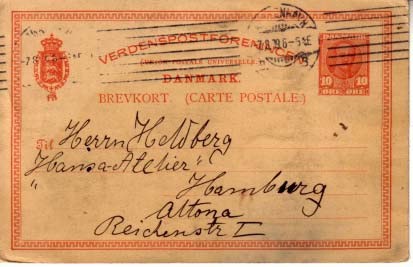 VERDENSPOSTFORENINGEN
(UNION POSTALE UNIVERSELLE)
DANMARK
DANMARK.
BREVKORT. (CARTE POSTALE.)
10 10
ØRE ØRE
Til Herrn Heldberg
"Hansa-Atelier"
Hamburg
Altona
Reichenstr I